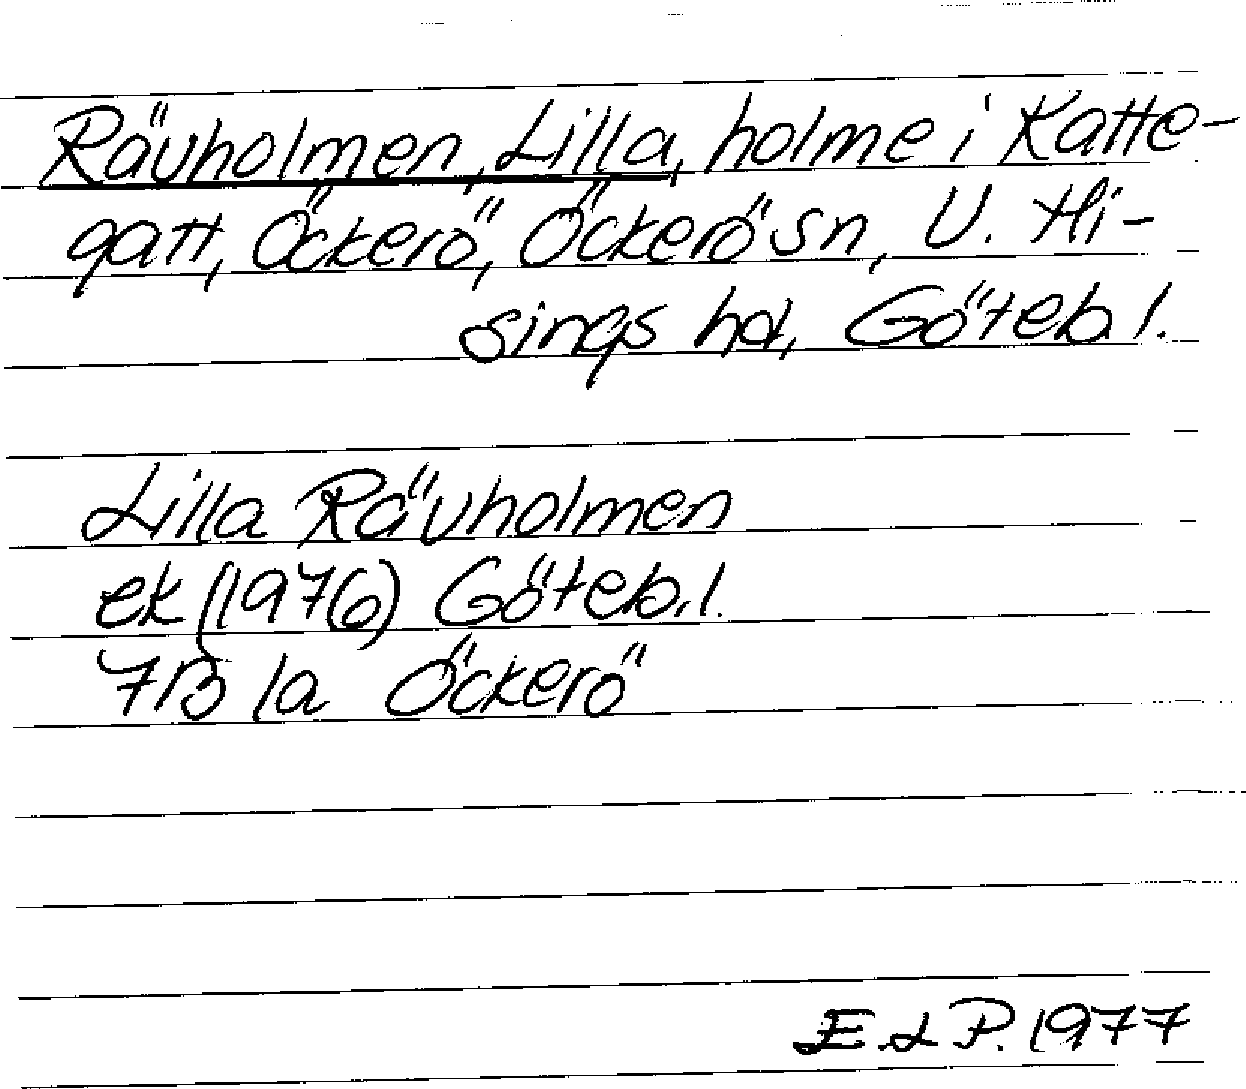 Rävholmen, Lilla, holme i Katte-
gatt, Öckerö, Öckerö sn, V. Hi-
sings hd, Göteb. l.
Lilla Rävholmen
ek (1976) Göteb. l.
7B 1a Öckerö
E.L P. 1977